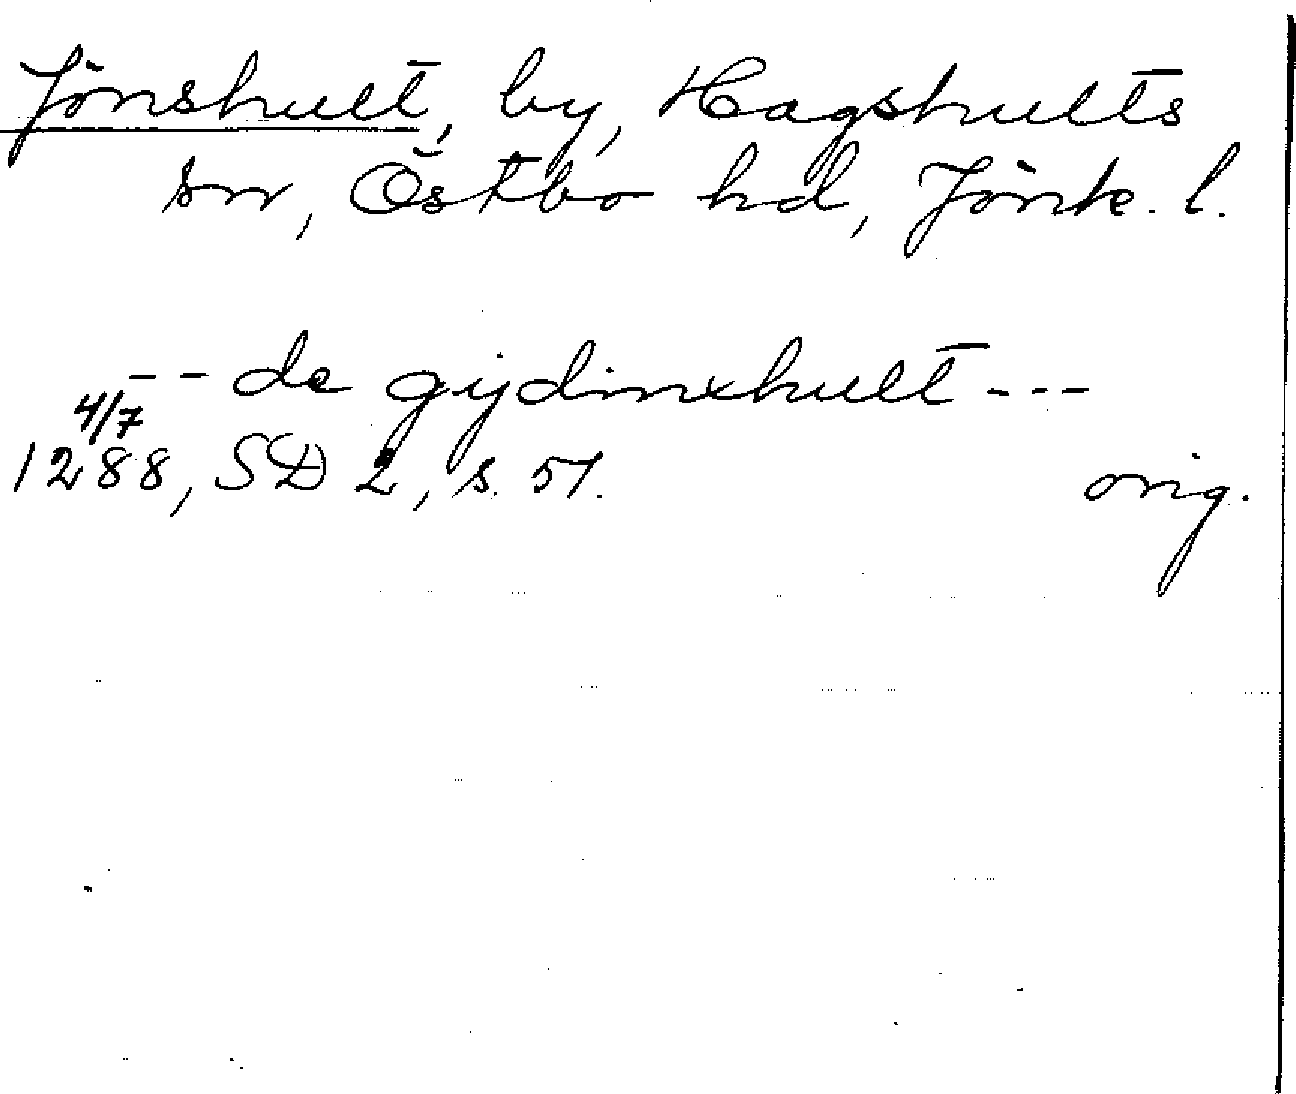 Jönshult, by, Hagshults
sn, Östbo hd, Jönk. l.
-- de gydinxhult ---
4/7
1288, SD 2, s. 51. orig.